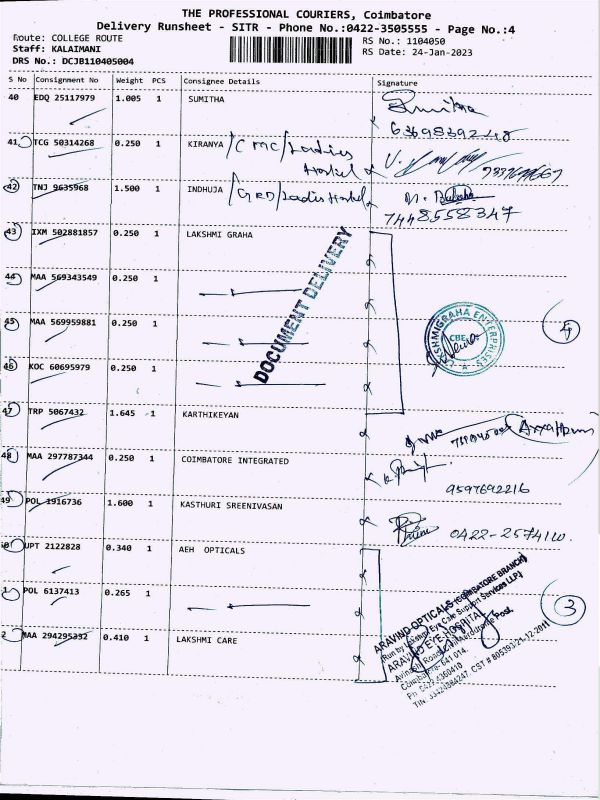 THE PROFESSIONAL COURIERS, Coimbatore
Delivery Runsheet - SITR - Phone No.:0422-3505555 - Page No.:4
Route: COLLEGE ROUTE RS No.: 1104050
Staff: KALAIMANI RS Date: 24-Jan-2023
DRS No.: DCJB110405004
S No Consignment No Weight PCS Consignee Details Signature
40 EDQ 25117979 1.005 1 SUMITHA Sumitha
41 TCG 50314268 0.250 1 KIRANYA / CMC/Ladies
Hostel
42 TNJ 9635968 1.500 1 INDHUJA /
7448558347
43 IXM 502881857 0.250 1 LAKSHMI GRAHA
44 MAA 569343549 0.250 1
45 MAA 569959881 0.250 1
46 KOC 60695979 0.250 1
DOCUMENT DELIVERY
LAKSHMIGRAHA ENTERPRISES
CBE
4
47 TRP 5067432 1.645 1 KARTHIKEYAN
48 MAA 297787344 0.250 1 COIMBATORE INTEGRATED
9597692216
49 POL 1916736 1.600 1 KASTHURI SREENIVASAN
0422-
UPT 2122828 0.340 1 AEH OPTICALS
POL 6137413 0.265 1
3
2 MAA 294295332 0.410 1 LAKSHMI CARE
ARAVIND OPTICALS (COIMBATORE BRANCH)
Run by Lakshmi Eye Care Support Services LLP)
ARAVIND EYE HOSPITAL
Coimbatore-641 014.
Ph: 0422-4360410